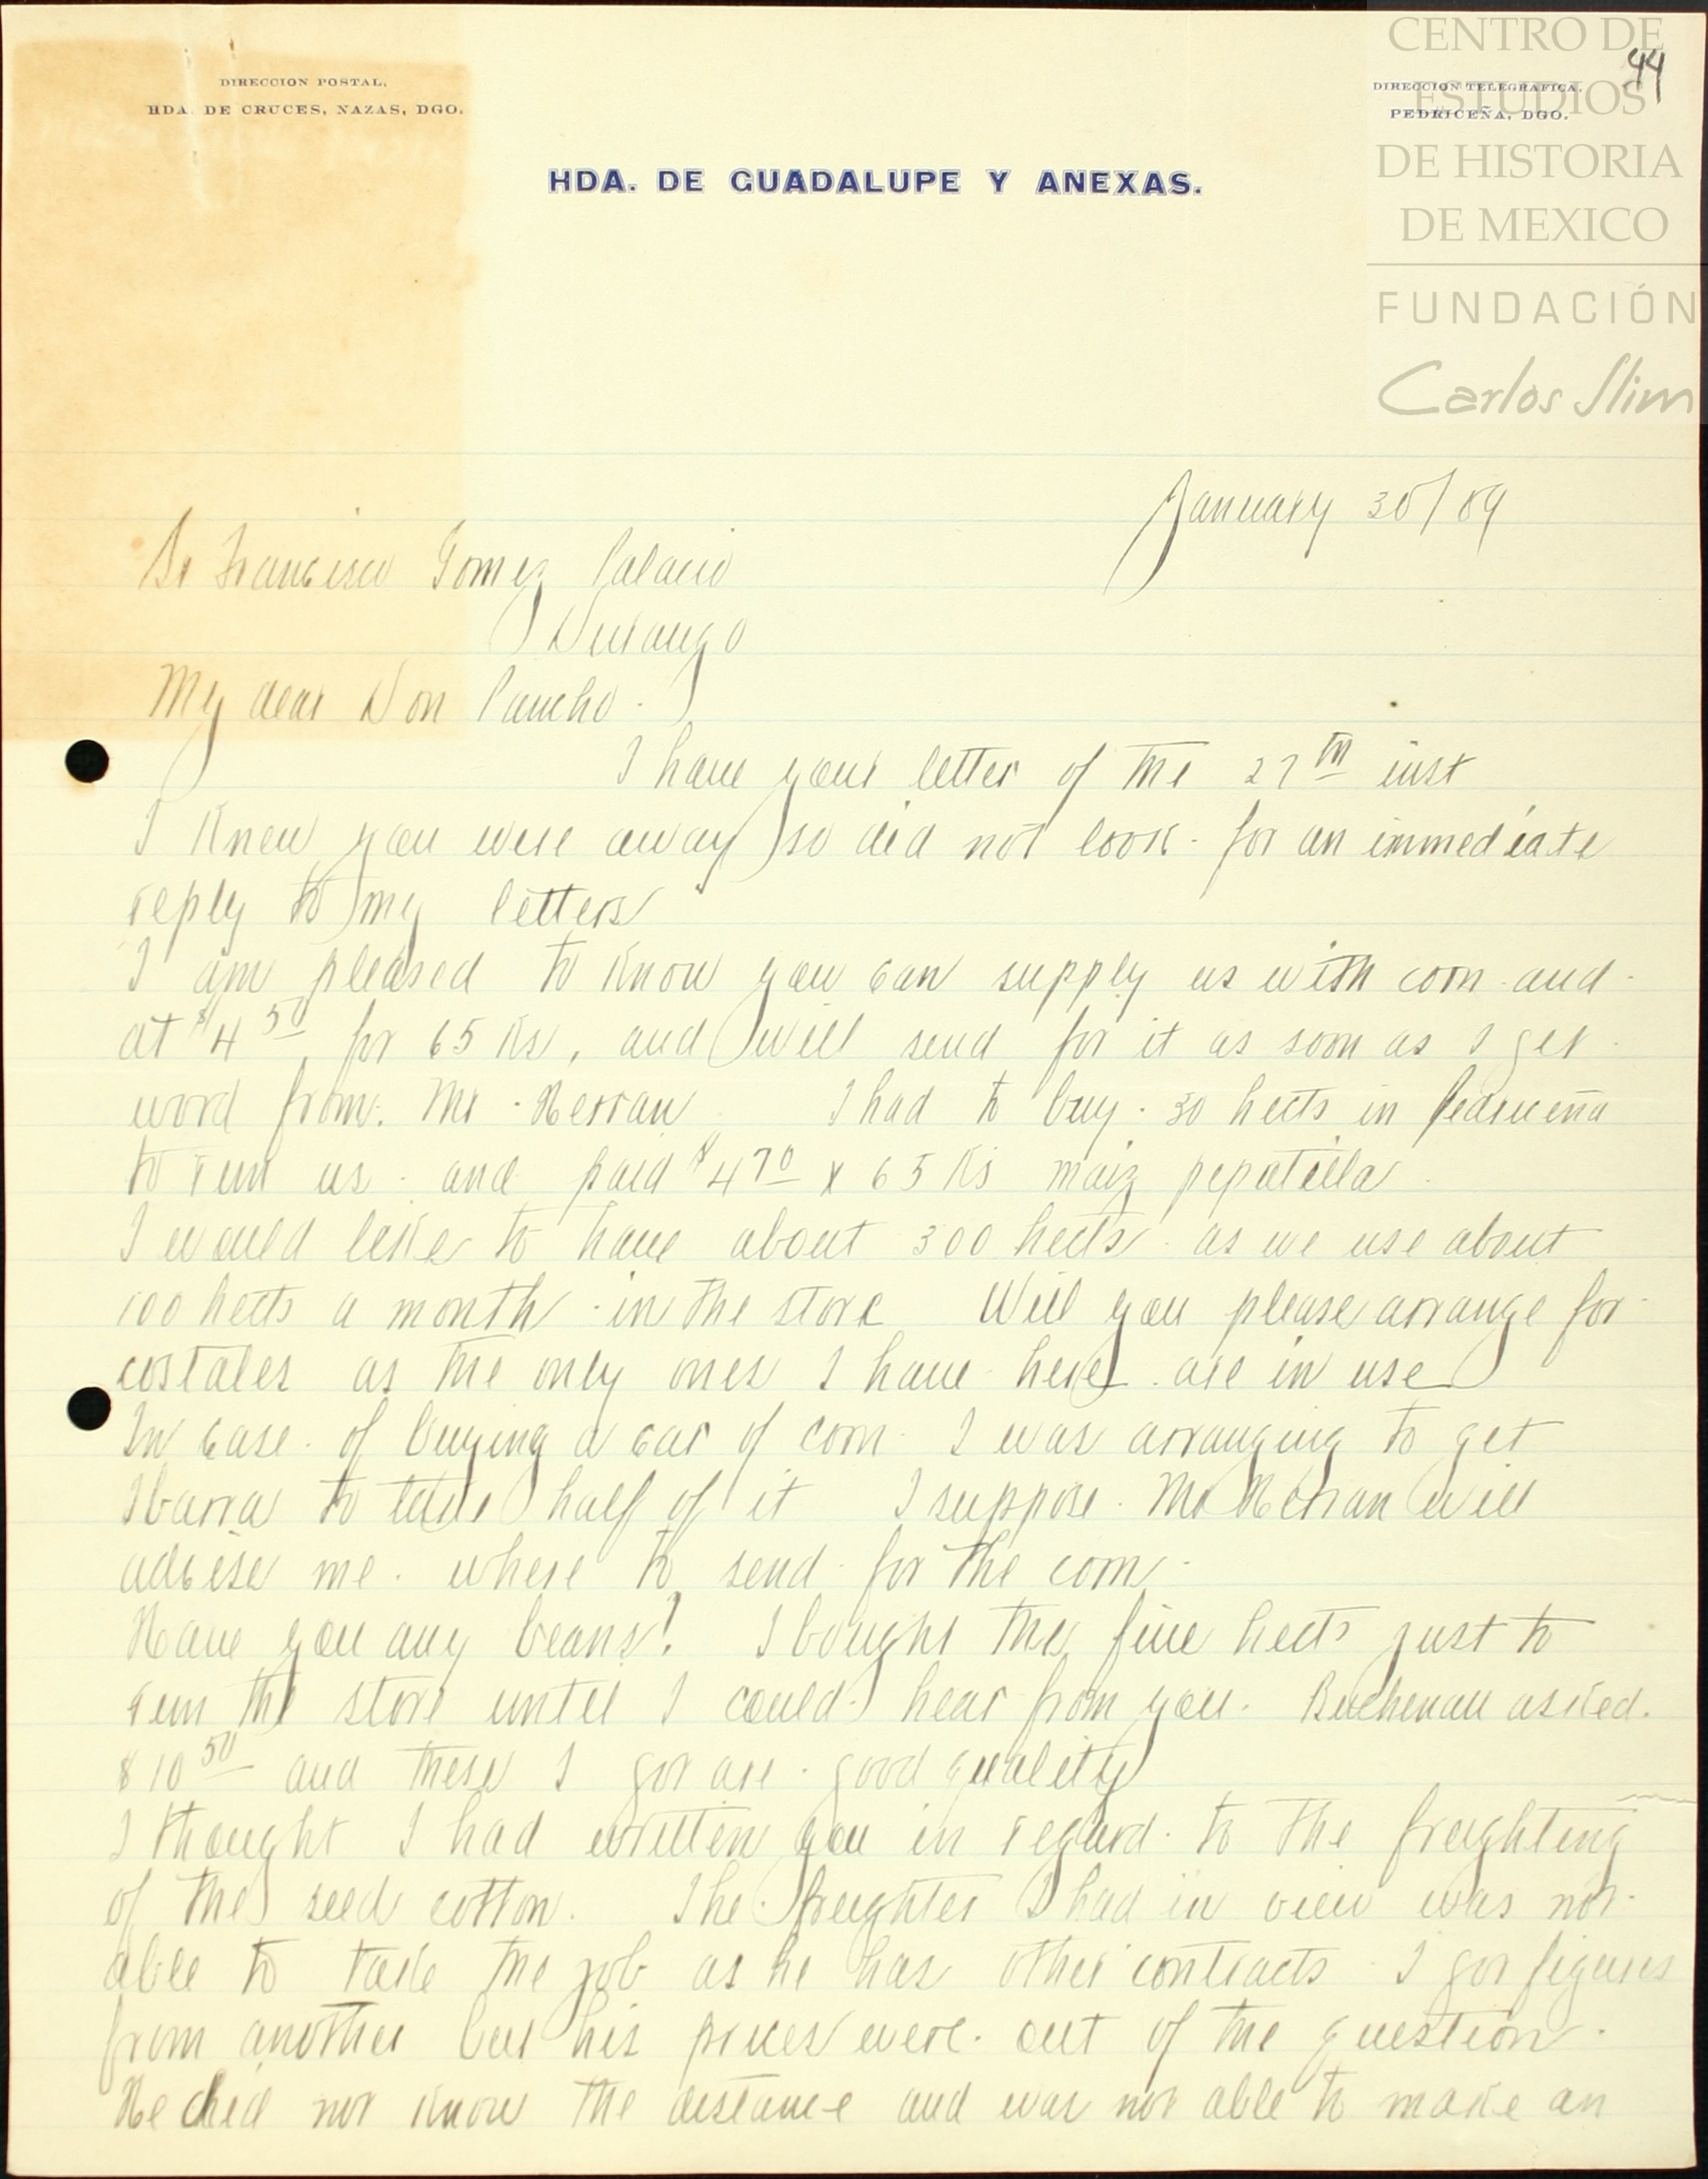 CENTRO DE
ESTUDIOS
DE HISTORIA
DE MEXICO
FUNDACIÓN
Carlos Slim
44
DIRECCION POSTAL,
HDA. DE CRUCES, NAZAS, DGO.
DIRECCION TELEGRAFICA.
PEDRICEÑA, DGO.
HDA. DE GUADALUPE Y ANEXAS.
January 30/09
Sr Francisco Gomez Palacio
Durango
My dear Don Pancho.
I have your letter of the 27th inst
I knew you were away so did not look for an immediate
reply to my letters
I am pleased to know you can supply us with corn and
at $4 50, for 65 Ks, and will send for it as soon as I get
word from. Mr. Herran I had to buy. 30 hects in Pedriceña
to run us. and paid $4 70 x 65 Ks maiz pepitilla.
I would like to have about 300 hects. as we use about
100 hects a month. in the store Will you please arrange for
costales as the only ones I have here are in use
In case. of buying a car of corn I was arranging to get
Ibarra to take half of it I suppose. Mr Herran will
advise me. where to send for the corn.
Have you any beans? I bought the five hects just to
run the store until I could hear from you. Buchenau asked.
$10 50 and these I got are. good quality
I thought I had written you in regard. to the freighting
of the seed cotton. The freighter I had in view was not
able to take the job as he has other contracts I got figures
from another but his prices were. out of the question.
He did not know the distance and was not able to make an